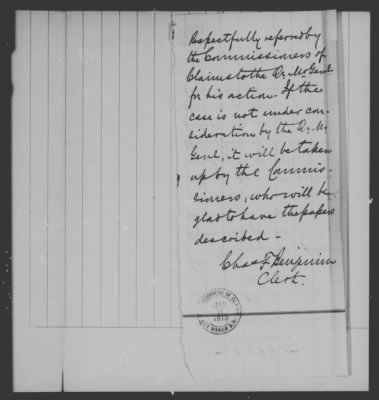 Respectfully referred by
the Commissioners of
Claims to the Qr. Mr Genl
for his action. If the
case is not under con-
sideration by the Qr. Mr
Genl, it will be taken
up by the Commis-
sioners, who will be
glad to have the papers
described –
Chas F. Benjamin
Clerk.
JAN
1873